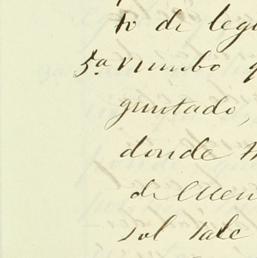 to de leg
5ª rumbo q
guntado,
donde h
de
sol sale